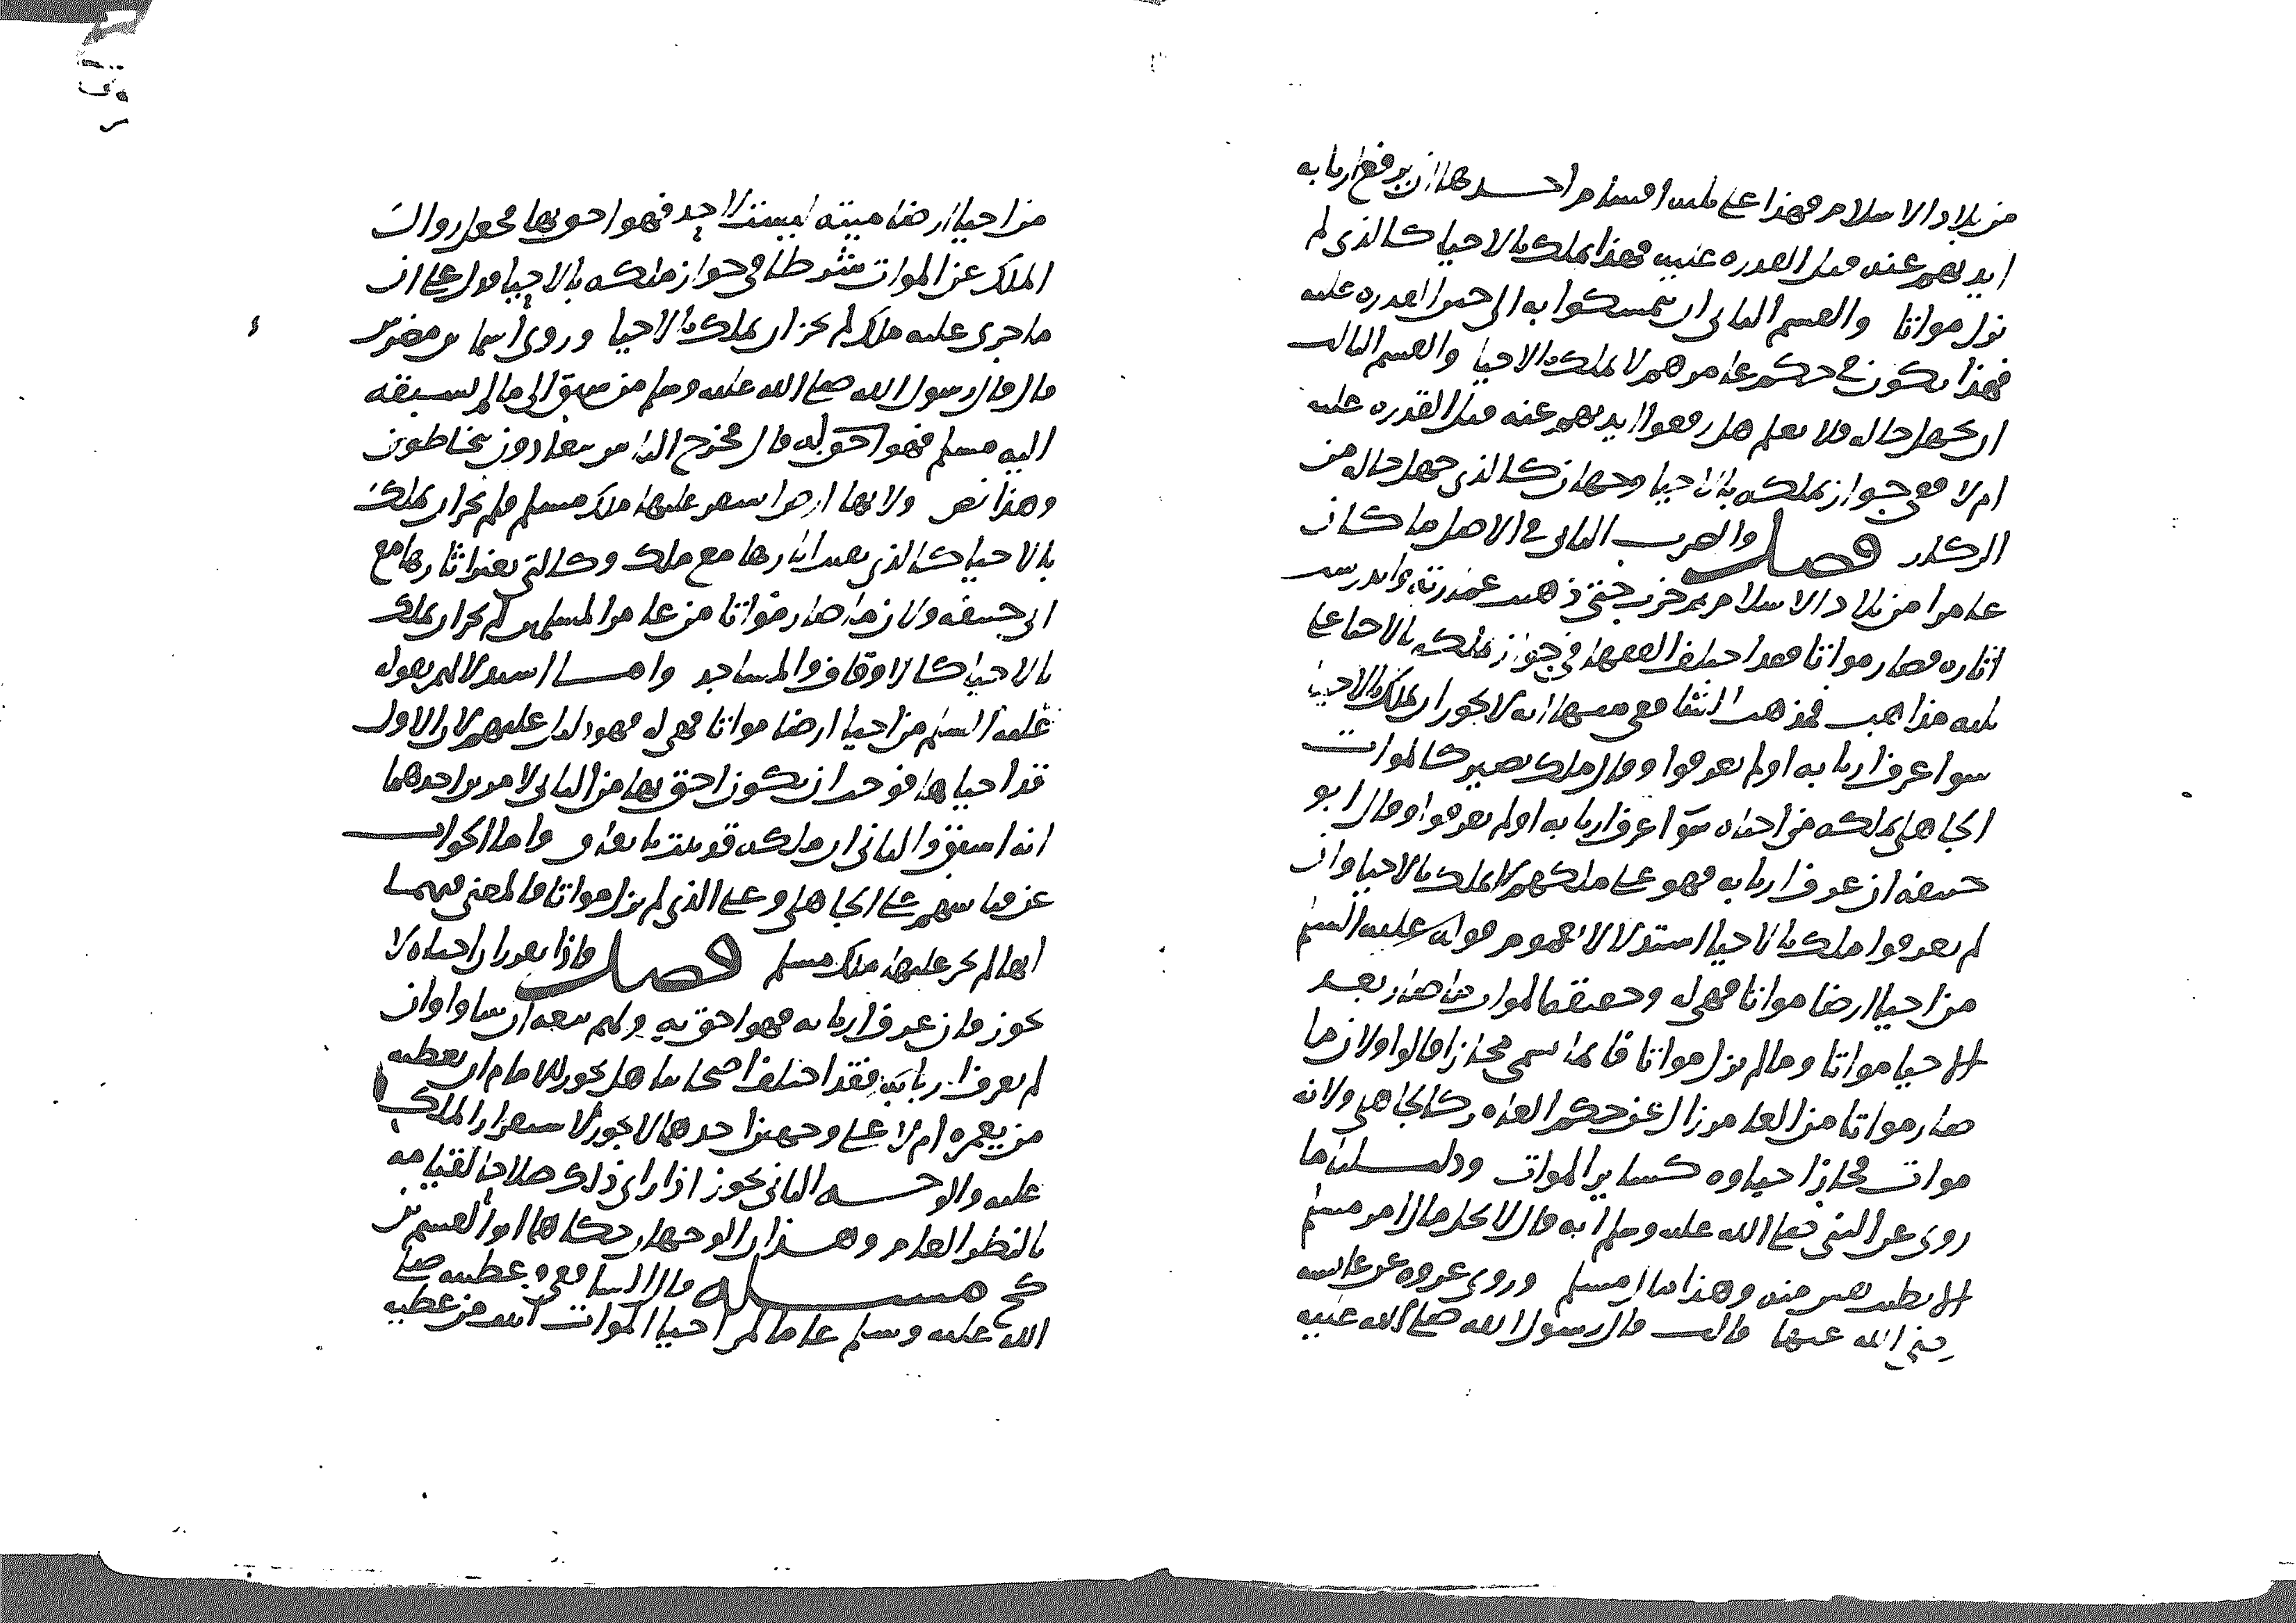 من بلاد الاسلام فهذا على ثلثه اقسام احدها ان يرفع اربابه
ايديهم عنه قبل القدره عليه فهذا يملك بالاحيا كالذى لم
يزل مواتا والقسم الثانى ان يتمسكوا به الى حين القدره عليه
فهذا يكون فى حكم عامرهم لا يملك بالاحيا والقسم الثالث
ان يجهل حاله فلا يعلم هل رفعوا ايديهم عنه قبل القدره عليه
ام لا ففى جواز تملكه بالاحيا وجهان كالذى جهل حاله من
الركاز فصل والضرب الثانى فى الاصل ما كان
عامرا من بلاد الاسلام ثم خرب حتى ذهبت عمارته واندرست
اثاره فصار مواتا فقد اختلف الفقها فى جواز تملكه بالاحيا على
ثلثه مذاهب فمذهب الشافعى منها انه لا يجوز ان يملك بالاحيا
سوا عرف اربابه او لم يعرفوا وقال ملك يصير كالموات
الجاهلى يملكه من احياه سوآ عرف اربابه او لم يعرفوا وقال ابو
حنيفه ان عرف اربابه فهو على ملكهم لا يملك بالاحيا وان
لم يعرفوا ملك بالاحيا استدلالا بعموم قوله عليه السلم
من احيا ارضا مواتا فهى له وحقيقه الموات ما صار بعد
الاحيا مواتا وما لم يزل مواتا فانما سمى مجازا قالوا ولان ما
صار مواتا من العامر زال عن حكم العامر كالجاهلى ولانه
موات فجاز احياوه كساير الموات ودليلنا ما
روى عن النبى صلى الله عليه وسلم انه قال لا يحل مال امر مسلم
الا بطيب نفس منه وهذا مال مسلم وروى عروه عن عايشه
رضى الله عنها قالت قال رسول الله صلى الله عليه
من احيا ارضا ميته ليست لاحد فهو احق بها فجعل زوال
الملك عن الموات شرطا فى جواز ملكه بالاحيا فدل على ان
ما جرى عليه ملك لم يجز ان يملك بالاحيا وروى اسما بن مضرس
قال قال رسول الله صلى الله عليه وسلم من سبق الى ما لم يسبقه
اليه مسلم فهو احق به قال فخرج الناس يتعادون يتخاطون
وهذا نص ولانها ارض استقر عليها ملك مسلم فلم يجز ان تملك
بالاحيا كالذى بقيت اثارها مع ملك وكالتى بغير اثارها مع
ابى حنيفه ولان ما صار مواتا من عامر المسلمين لم يجز ان يملك
بالاحيا كالاوقاف والمساجد واما استدلالهم بقوله
عليه السلم من احيا ارضا مواتا فهى له فهو دليل عليهم لان الاول
قد احياها فوجب ان يكون احق بها من الثانى لامرين احدهما
انه اسبق والثانى ان ملكه قد ثبت باتفاق واما الجواب
عن قياسهم على الجاهلى وعلى الذى لم يزل مواتا فالمعنى فيهما
انها لم يجر عليها ملك مسلم فصل فاذا تقرر ان احياه لا
يجوز فان عرف اربابه فهو احق به ولهم بيعه ان شاوا وان
لم يعرف اربابه فقد اختلف اصحابنا هل يجوز للامام ان يعطيه
من يعمره ام لا على وجهين احدهما لا يجوز لاستقرار الملك
عليه والوجه الثانى يجوز اذا راى ذلك صلاحا لقيامه
بالنظر العام وهذان الوجهان حكاهما ابو القسم بن
كج مسله قال الشافعى وعطيه صلى
الله عليه وسلم عام لمن احيا الموات اثبت من عطيه